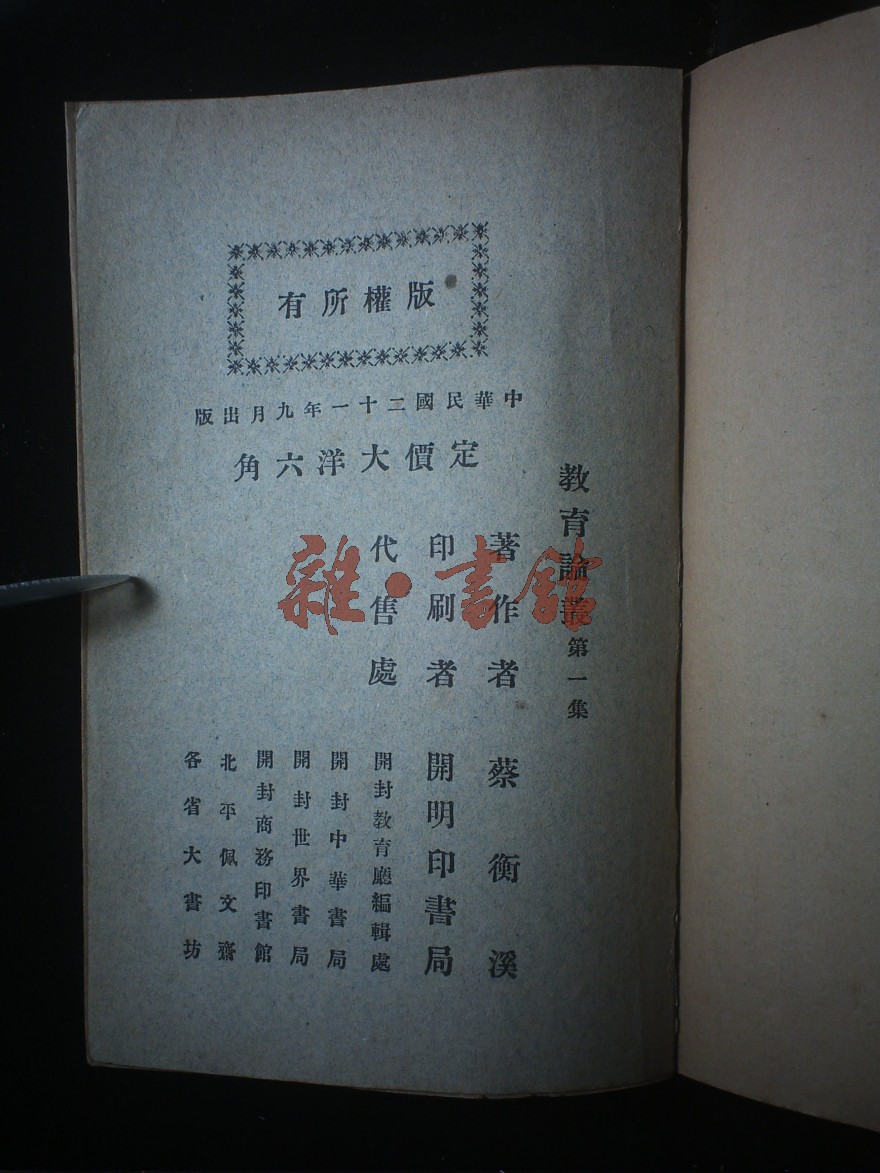 版權所有
中華民國二十一年九月出版
定價大洋六角
教育論叢第一集
著作者 蔡衡溪
印刷者 開明印書局
代售處 開封教育廳編輯處
開封中華書局
開封世界書局
開封商務印書館
北平佩文齋
各省大書坊
雜·書館